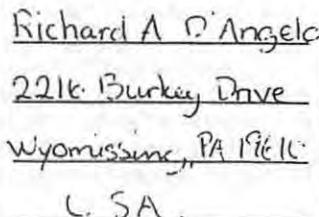 Richard A D'Angelo
2216 Burkey Drive
Wyomissing, PA 19610
USA